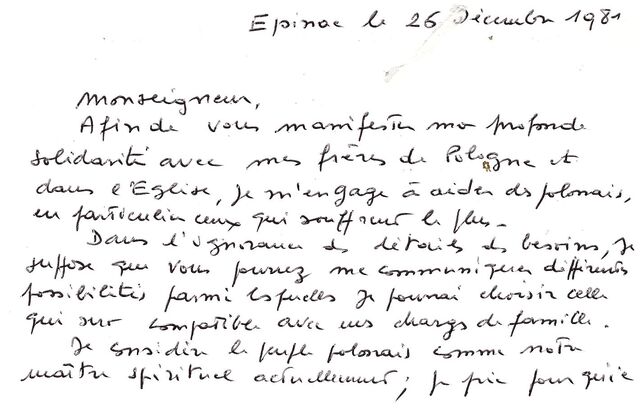 Epinac le 26 Décembre 1981
Monseigneur,
Afin de vous manifester ma profonde
solidarité avec mes frères de Pologne et
dans l'Eglise, je m'engage à aider des polonais,
en particulier ceux qui souffrent le plus.
Dans l'ignorance des détails des besoins, je
suppose que vous pourrez me communiquer différentes
possibilités parmi lesquelles je pourrai choisir celle
qui sera compatible avec mes charges de famille.
Je considère le peuple polonais comme notre
maître spirituel actuellement; je prie pour qu'il